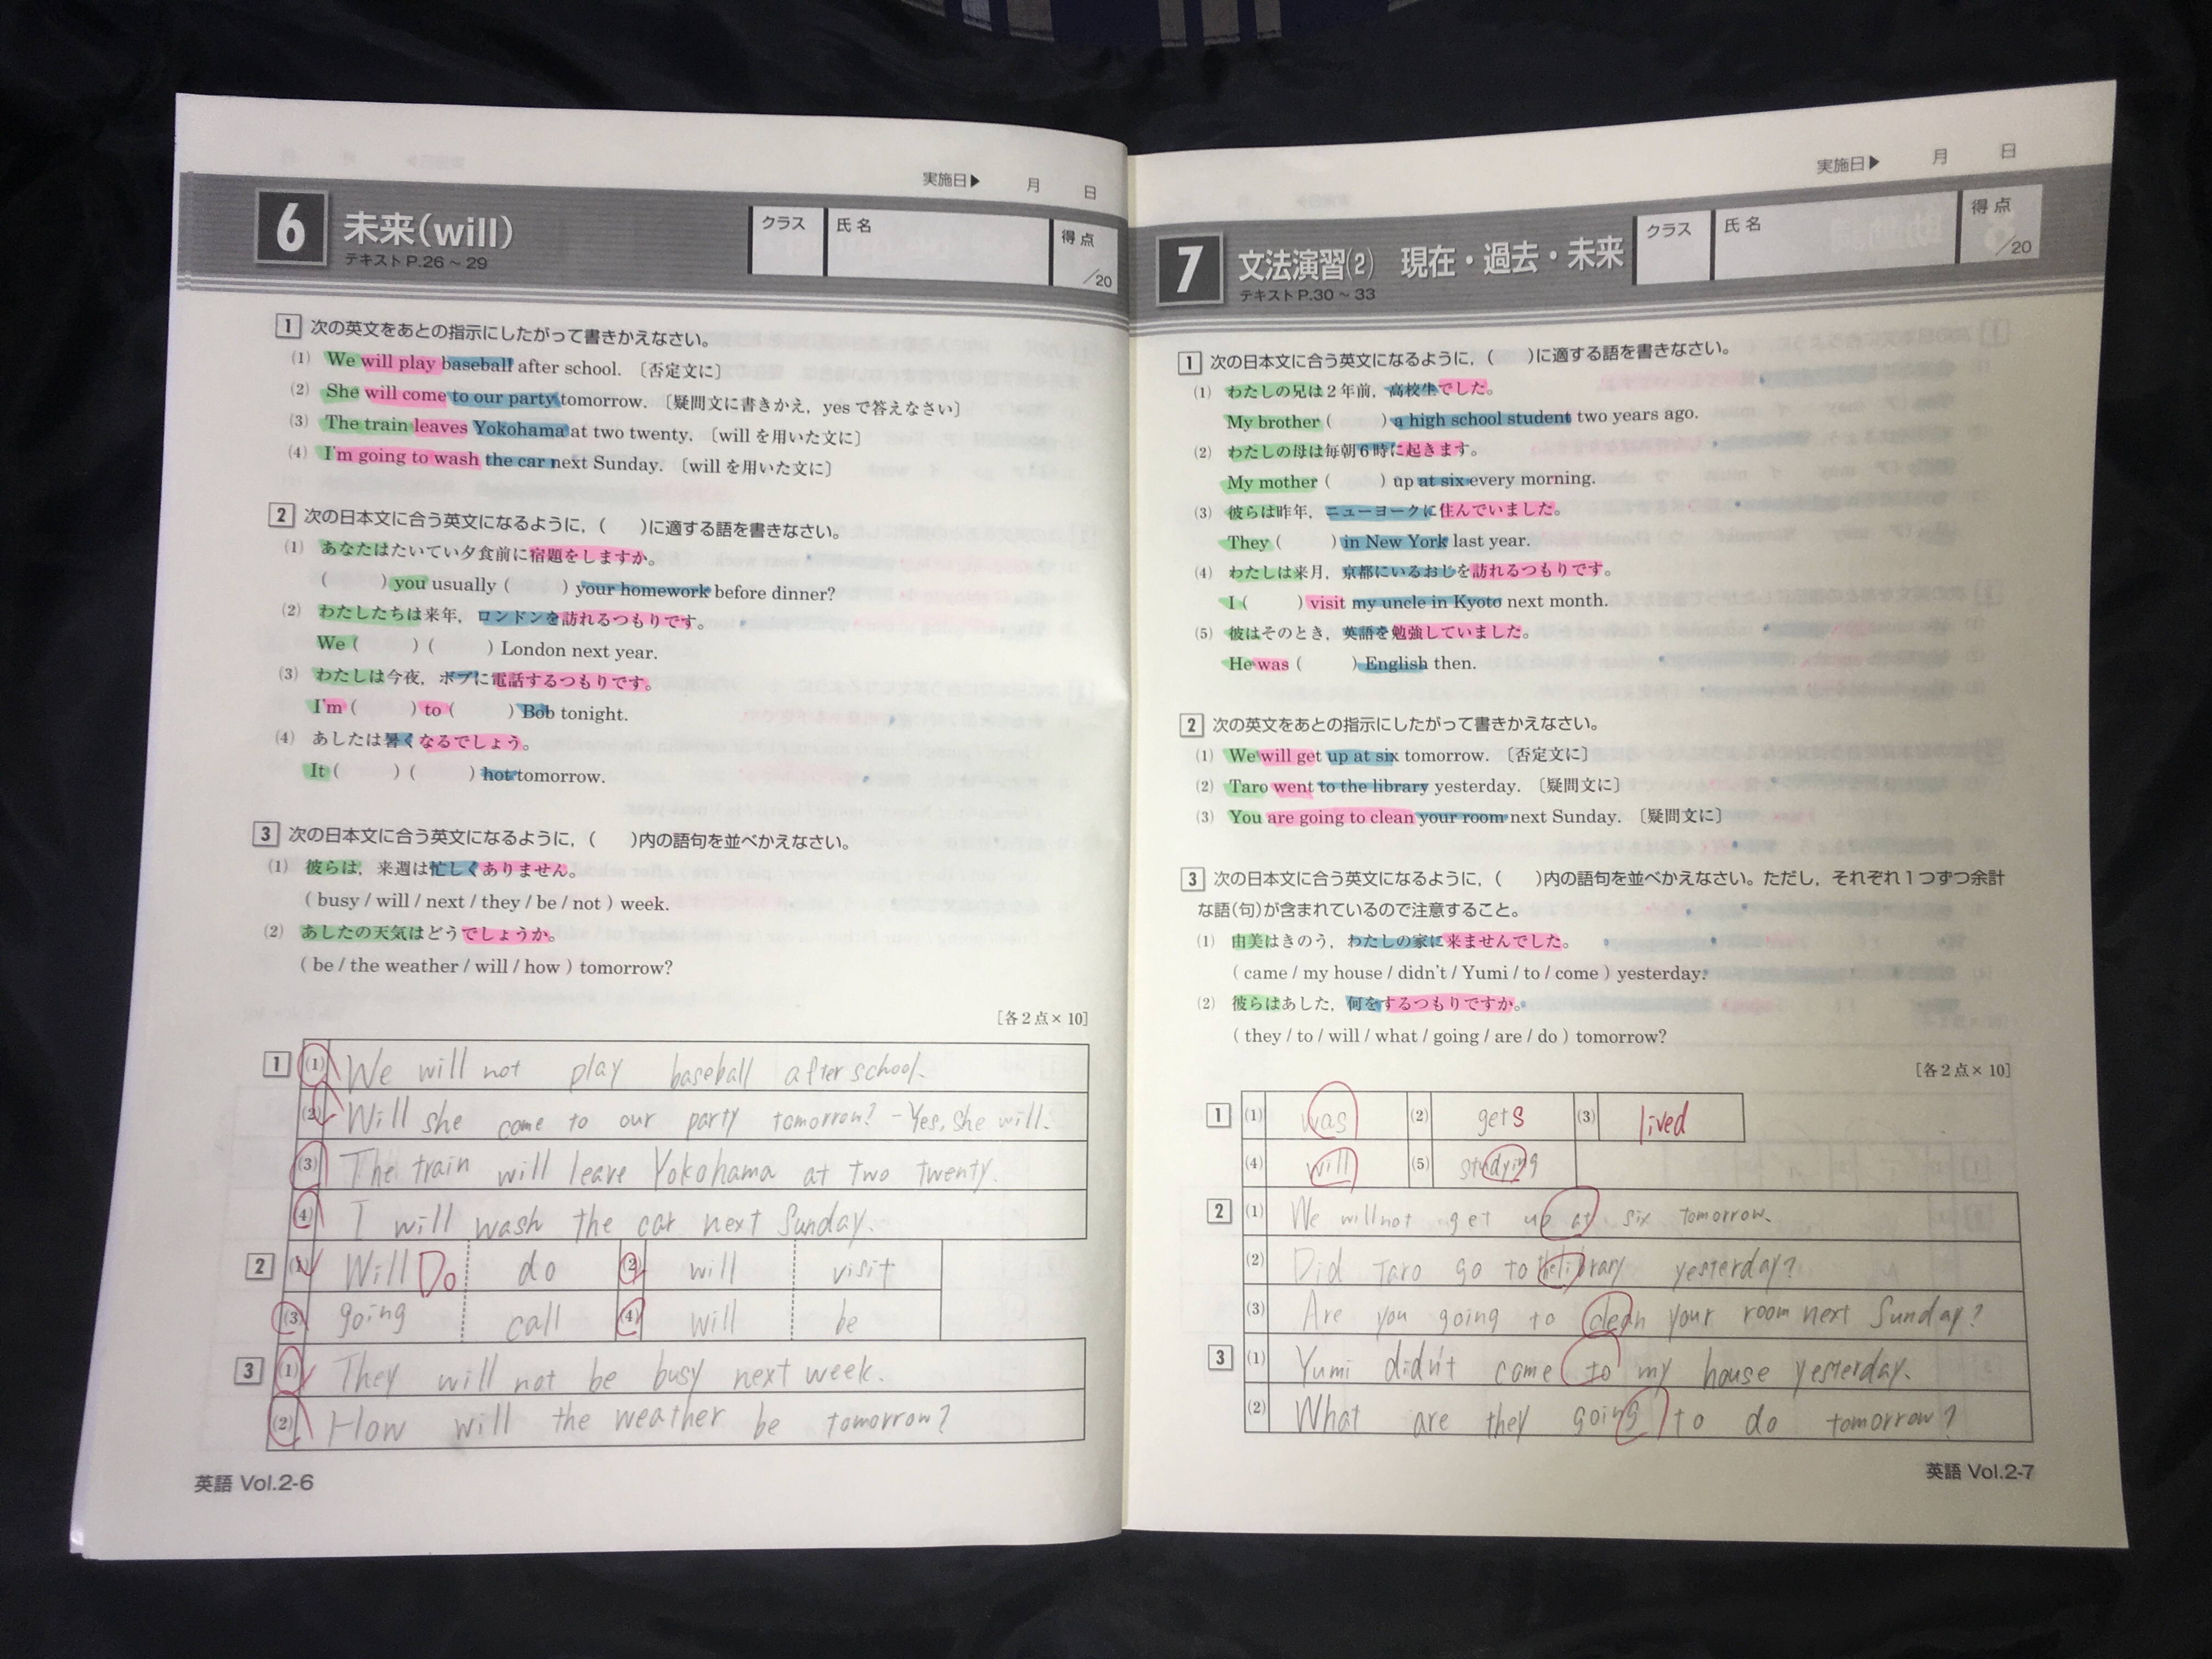 実施日▶ 月 日
6 未来(will)
テキストP.26～29
クラス 氏名 得点 /20
1 次の英文をあとの指示にしたがって書きかえなさい。
(1) We will play baseball after school. 〔否定文に〕
(2) She will come to our party tomorrow. 〔疑問文に書きかえ，yesで答えなさい〕
(3) The train leaves Yokohama at two twenty. 〔willを用いた文に〕
(4) I'm going to wash the car next Sunday. 〔willを用いた文に〕
2 次の日本文に合う英文になるように，( )に適する語を書きなさい。
(1) あなたはたいてい夕食前に宿題をしますか。
( ) you usually ( ) your homework before dinner?
(2) わたしたちは来年，ロンドンを訪れるつもりです。
We ( ) ( ) London next year.
(3) わたしは今夜，ボブに電話するつもりです。
I'm ( ) to ( ) Bob tonight.
(4) あしたは暑くなるでしょう。
It ( ) ( ) hot tomorrow.
3 次の日本文に合う英文になるように，( )内の語句を並べかえなさい。
(1) 彼らは，来週は忙しくありません。
( busy / will / next / they / be / not ) week.
(2) あしたの天気はどうでしょうか。
( be / the weather / will / how ) tomorrow?
[各2点×10]
1 (1) We will not play baseball after school.
(2) Will she come to our party tomorrow? -Yes, she will.
(3) The train will leave Yokohama at two twenty.
(4) I will wash the car next Sunday.
2 (1) Will Do do (2) will visit
(3) going call (4) will be
3 (1) They will not be busy next week.
(2) How will the weather be tomorrow?
英語 Vol.2-6
実施日▶ 月 日
7 文法演習(2) 現在・過去・未来
テキストP.30～33
クラス 氏名 得点 /20
1 次の日本文に合う英文になるように，( )に適する語を書きなさい。
(1) わたしの兄は2年前，高校生でした。
My brother ( ) a high school student two years ago.
(2) わたしの母は毎朝6時に起きます。
My mother ( ) up at six every morning.
(3) 彼らは昨年，ニューヨークに住んでいました。
They ( ) in New York last year.
(4) わたしは来月，京都にいるおじを訪れるつもりです。
I ( ) visit my uncle in Kyoto next month.
(5) 彼はそのとき，英語を勉強していました。
He was ( ) English then.
2 次の英文をあとの指示にしたがって書きかえなさい。
(1) We will get up at six tomorrow. 〔否定文に〕
(2) Taro went to the library yesterday. 〔疑問文に〕
(3) You are going to clean your room next Sunday. 〔疑問文に〕
3 次の日本文に合う英文になるように，( )内の語句を並べかえなさい。ただし，それぞれ1つずつ余計
な語(句)が含まれているので注意すること。
(1) 由美はきのう，わたしの家に来ませんでした。
( came / my house / didn't / Yumi / to / come ) yesterday.
(2) 彼らはあした，何をするつもりですか。
( they / to / will / what / going / are / do ) tomorrow?
[各2点×10]
1 (1) was (2) gets (3) lived
(4) will (5) studying
2 (1) We will not get up at six tomorrow.
(2) Did Taro go to the library yesterday?
(3) Are you going to clean your room next Sunday?
3 (1) Yumi didn't come to my house yesterday.
(2) What are they going to do tomorrow?
英語 Vol.2-7